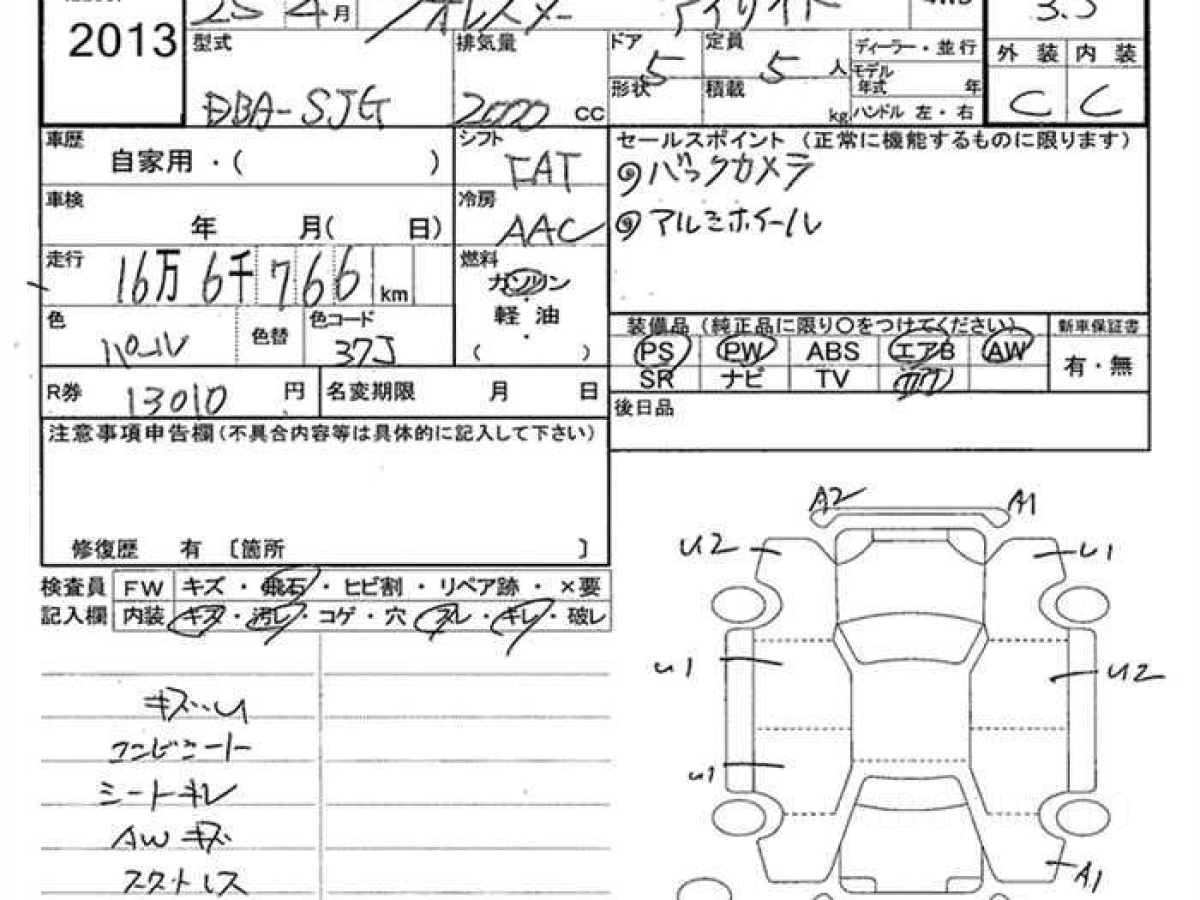 25 4月 フォレスター アイサイト 4WD 3.5
2013 型式 排気量 ドア 5 定員 5 人 ディーラー・並行 外装 内装
モデル年式 年
形状 積載 kg ハンドル 左・右
DBA-SJG 2000 CC C C
車歴 自家用・( ) シフト FAT セールスポイント(正常に機能するものに限ります)
◎バックカメラ
車検 年 月( 日) 冷房 AAC ◎アルミホイール
走行 16万6千766km 燃料 ガソリン
軽油
( )
色 パール 色替 色コード 37J
装備品(純正品に限り○をつけてください) 新車保証書
PS PW ABS エアB AW 有・無
SR ナビ TV カワ
R券 13010 円 名変期限 月 日 後日品
注意事項申告欄(不具合内容等は具体的に記入して下さい)
修復歴 有 〔箇所 〕
検査員 FW キズ・飛石・ヒビ割・リペア跡・×要
記入欄 内装 キズ・汚レ・コゲ・穴・スレ・キレ・破レ
キズ・U
コンビニート
シートキレ
AWキズ
スタットレス
A2 A1
U2 U1
U1 U2
U1
A1